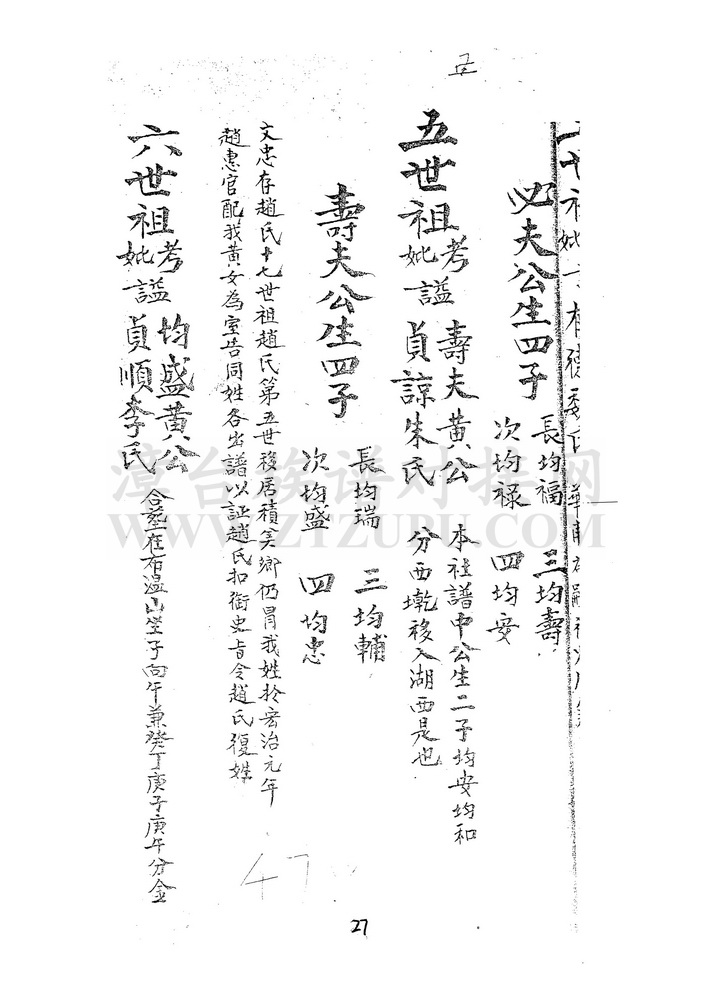 必夫公生四子
長均福 三均壽
次均禄 四均安
五世祖考妣謚 壽夫黄公 貞諒朱氏
本社譜中公生二子均安均和
分西墘移入湖西是也
壽夫公生四子
長均瑞 三均輔
次均盛 四均惠
文忠存趙氏十七世祖趙氏第五世移居積美鄉仍冒我姓於宏治元年
趙惠官配我黄女為室告同姓各出譜以証趙氏扣衙史旨令趙氏復姓
六世祖考妣謚 均盛黄公 貞順李氏
合葬在石温山坐子向午兼癸丁庚子庚午分金
27
47
漳台族谱对接网
WWW.ZTZUPU.COM